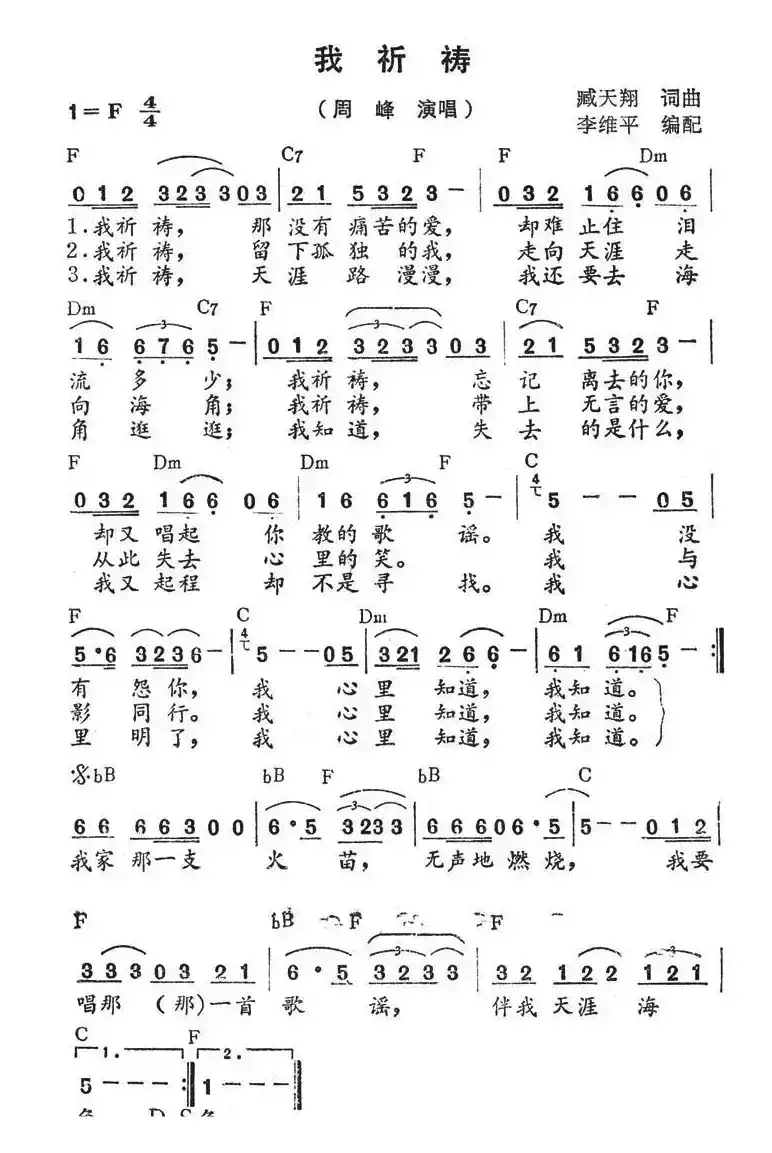 我祈祷
1=F 4/4 （周 峰 演唱） 臧天翔 词曲
李维平 编配
F C7 F F Dm
0 1 2 3 2 3 3 0 3 | 2 1 5 3 2 3 － | 0 3 2 1 6 6 0 6 |
1.我祈祷， 那 没有 痛苦的爱， 却难 止住 泪
2.我祈祷， 留 下孤 独 的我， 走向 天涯 走
3.我祈祷， 天 涯 路 漫漫， 我还 要去 海
Dm C7 F C7 F
1 6 6 7 6 5 － | 0 1 2 3 2 3 3 0 3 | 2 1 5 3 2 3 － |
流 多 少； 我祈 祷， 忘 记 离去的你，
向 海 角； 我祈 祷， 带 上 无言的爱，
角 逛 逛； 我知 道， 失 去 的是什么，
F Dm Dm F C
0 3 2 1 6 6 0 6 | 1 6 6 1 6 5 － | 5 － － 0 5 |
却又 唱起 你 教的 歌 谣。 我 没
从此 失去 心 里的 笑。 我 与
我又 起程 却 不是 寻 找。 我 心
F C Dm Dm F
5 • 6 3 2 3 6 － | 5 － － 0 5 | 3 2 1 2 6 6 • | 6 1 6 1 6 5 － :||
有 怨你， 我 心 里 知道， 我知 道。
影 同行。 我 心 里 知道， 我知 道。
里 明了， 我 心 里 知道， 我知 道。
bB bB F bB C
6 6 6 6 3 0 0 | 6 • 5 3 2 3 3 | 6 6 6 0 6 • 5 | 5 － － 0 1 2 |
我家 那一支 火 苗， 无声地 燃烧， 我要
F bB F F
3 3 3 0 3 2 1 | 6 • 5 3 2 3 3 | 3 2 1 2 2 1 2 1 |
唱那 （那）一首 歌 谣， 伴我 天涯 海
C F
1. 2.
5 － － － :|| 1 － － － ||